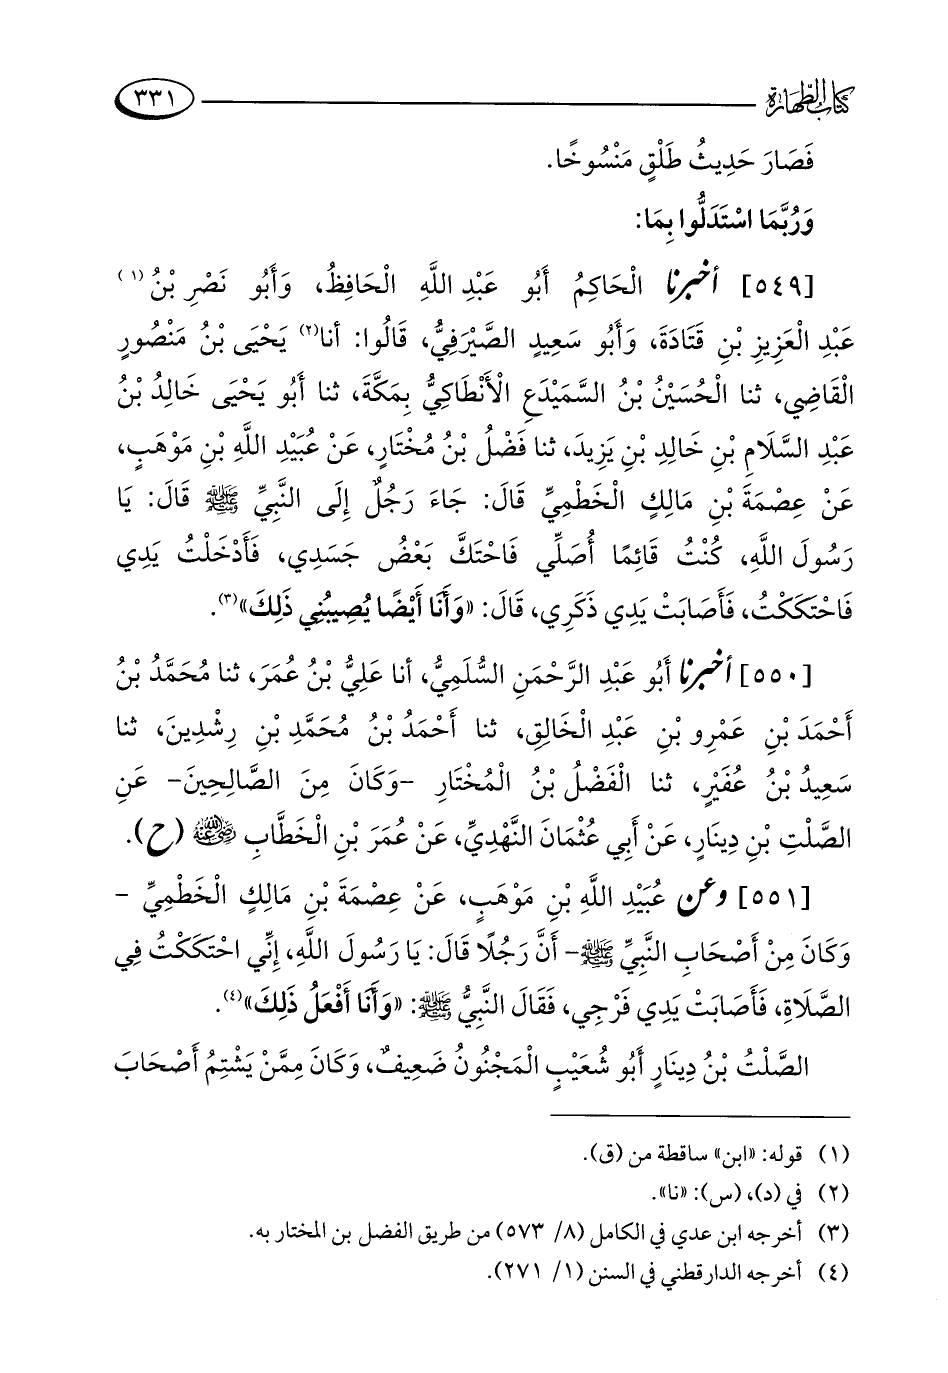 كتاب الطهارة ٣٣١
فَصَارَ حَدِيثُ طَلْقٍ مَنْسُوخًا.
وَرُبَّمَا اسْتَدَلُّوا بِمَا:
[٥٤٩] أخبرنا الْحَاكِمُ أَبُو عَبْدِ اللَّهِ الْحَافِظُ، وَأَبُو نَصْرِ بْنُ(١)
عَبْدِ الْعَزِيزِ بْنِ قَتَادَةَ، وَأَبُو سَعِيدٍ الصَّيْرَفِيُّ، قَالُوا: أنا(٢) يَحْيَى بْنُ مَنْصُورٍ
الْقَاضِي، ثنا الْحُسَيْنُ بْنُ السَّمَيْدَعِ الْأَنْطَاكِيُّ بِمَكَّةَ، ثنا أَبُو يَحْيَى خَالِدُ بْنُ
عَبْدِ السَّلَامِ بْنِ خَالِدِ بْنِ يَزِيدَ، ثنا فَضْلُ بْنُ مُخْتَارٍ، عَنْ عُبَيْدِ اللَّهِ بْنِ مَوْهَبٍ،
عَنْ عِصْمَةَ بْنِ مَالِكٍ الْخَطْمِيِّ قَالَ: جَاءَ رَجُلٌ إِلَى النَّبِيِّ ﷺ قَالَ: يَا
رَسُولَ اللَّهِ، كُنْتُ قَائِمًا أُصَلِّي فَاحْتَكَّ بَعْضُ جَسَدِي، فَأَدْخَلْتُ يَدِي
فَاحْتَكَكْتُ، فَأَصَابَتْ يَدِي ذَكَرِي، قَالَ: «وَأَنَا أَيْضًا يُصِيبُنِي ذَلِكَ»(٣).
[٥٥٠] أخبرنا أَبُو عَبْدِ الرَّحْمَنِ السُّلَمِيُّ، أنا عَلِيُّ بْنُ عُمَرَ، ثنا مُحَمَّدُ بْنُ
أَحْمَدَ بْنِ عَمْرِو بْنِ عَبْدِ الْخَالِقِ، ثنا أَحْمَدُ بْنُ مُحَمَّدِ بْنِ رِشْدِينَ، ثنا
سَعِيدُ بْنُ عُفَيْرٍ، ثنا الْفَضْلُ بْنُ الْمُخْتَارِ -وَكَانَ مِنَ الصَّالِحِينَ- عَنِ
الصَّلْتِ بْنِ دِينَارٍ، عَنْ أَبِي عُثْمَانَ النَّهْدِيِّ، عَنْ عُمَرَ بْنِ الْخَطَّابِ رضي الله عنه (ح).
[٥٥١] وعن عُبَيْدِ اللَّهِ بْنِ مَوْهَبٍ، عَنْ عِصْمَةَ بْنِ مَالِكٍ الْخَطْمِيِّ -
وَكَانَ مِنْ أَصْحَابِ النَّبِيِّ ﷺ- أَنَّ رَجُلًا قَالَ: يَا رَسُولَ اللَّهِ، إِنِّي احْتَكَكْتُ فِي
الصَّلَاةِ، فَأَصَابَتْ يَدِي فَرْجِي، فَقَالَ النَّبِيُّ ﷺ: «وَأَنَا أَفْعَلُ ذَلِكَ»(٤).
الصَّلْتُ بْنُ دِينَارٍ أَبُو شُعَيْبٍ الْمَجْنُونُ ضَعِيفٌ، وَكَانَ مِمَّنْ يَشْتِمُ أَصْحَابَ
(١) قوله: «ابن» ساقطة من (ق).
(٢) في (د)، (س): «نا».
(٣) أخرجه ابن عدي في الكامل (٨/ ٥٧٣) من طريق الفضل بن المختار به.
(٤) أخرجه الدارقطني في السنن (١/ ٢٧١).